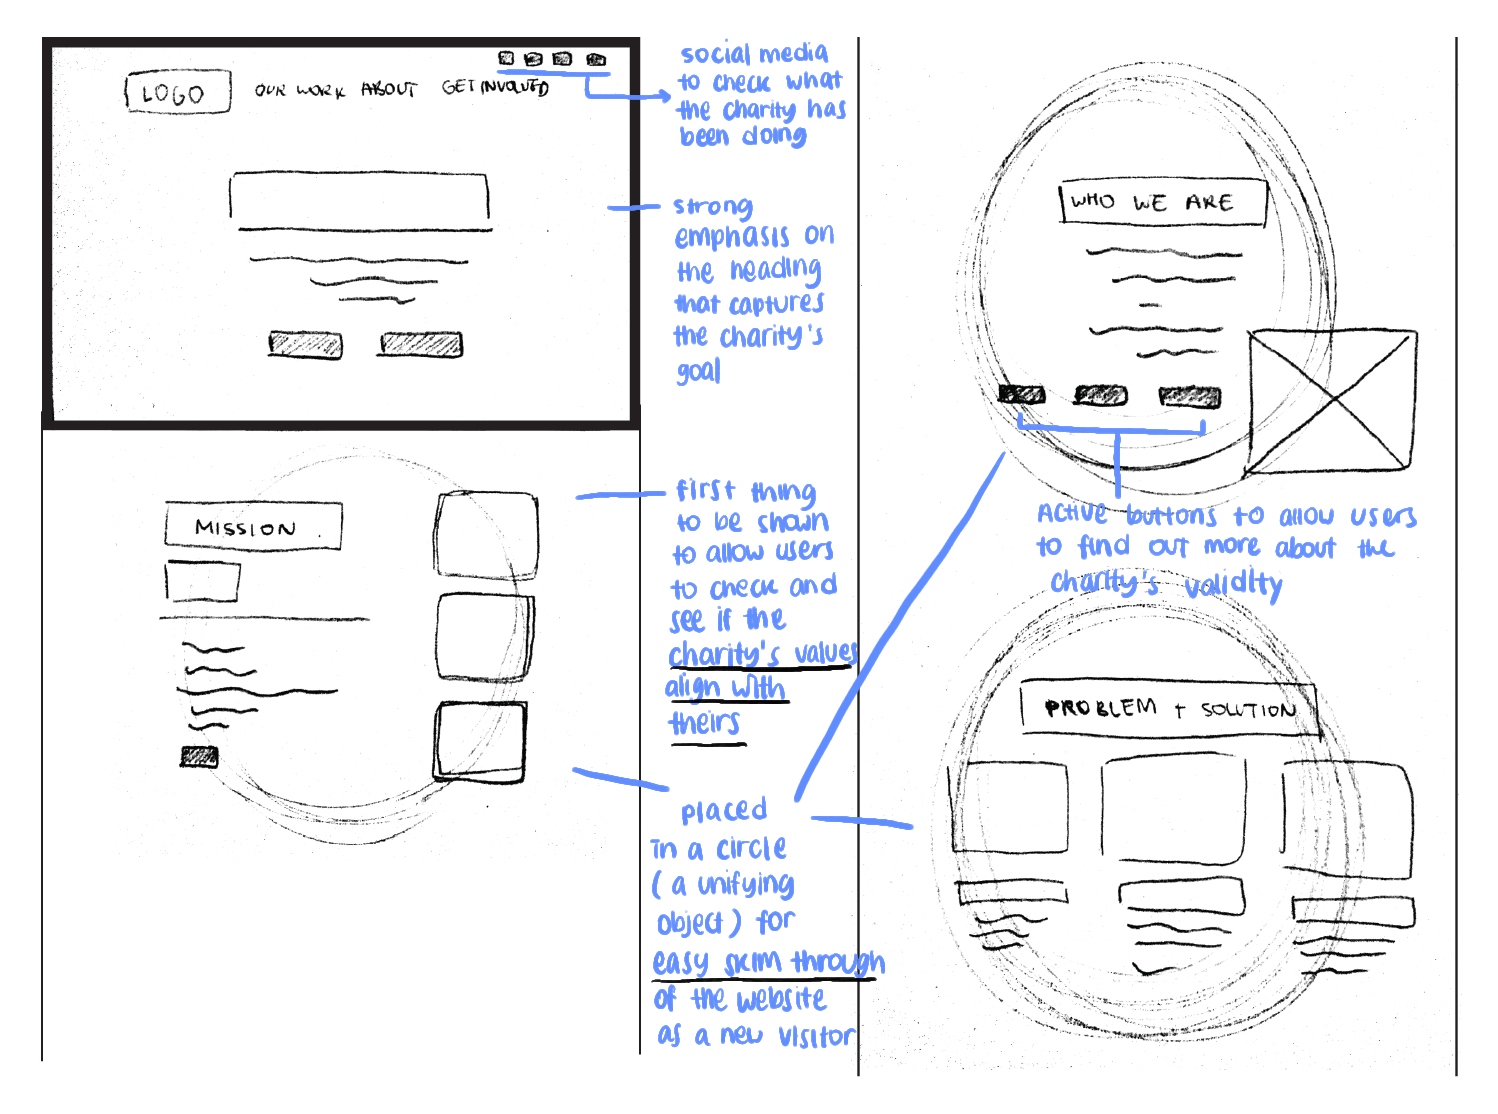 LOGO
OUR WORK ABOUT GET INVOLVED
social media
to check what
the charity has
been doing
strong
emphasis on
the heading
that captures
the charity's
goal
MISSION
first thing
to be shown
to allow users
to check and
see if the
charity's values
align with
theirs
placed
in a circle
( a unifying
object ) for
easy skim through
of the website
as a new visitor
WHO WE ARE
Active buttons to allow users
to find out more about the
charity's validity
PROBLEM + SOLUTION